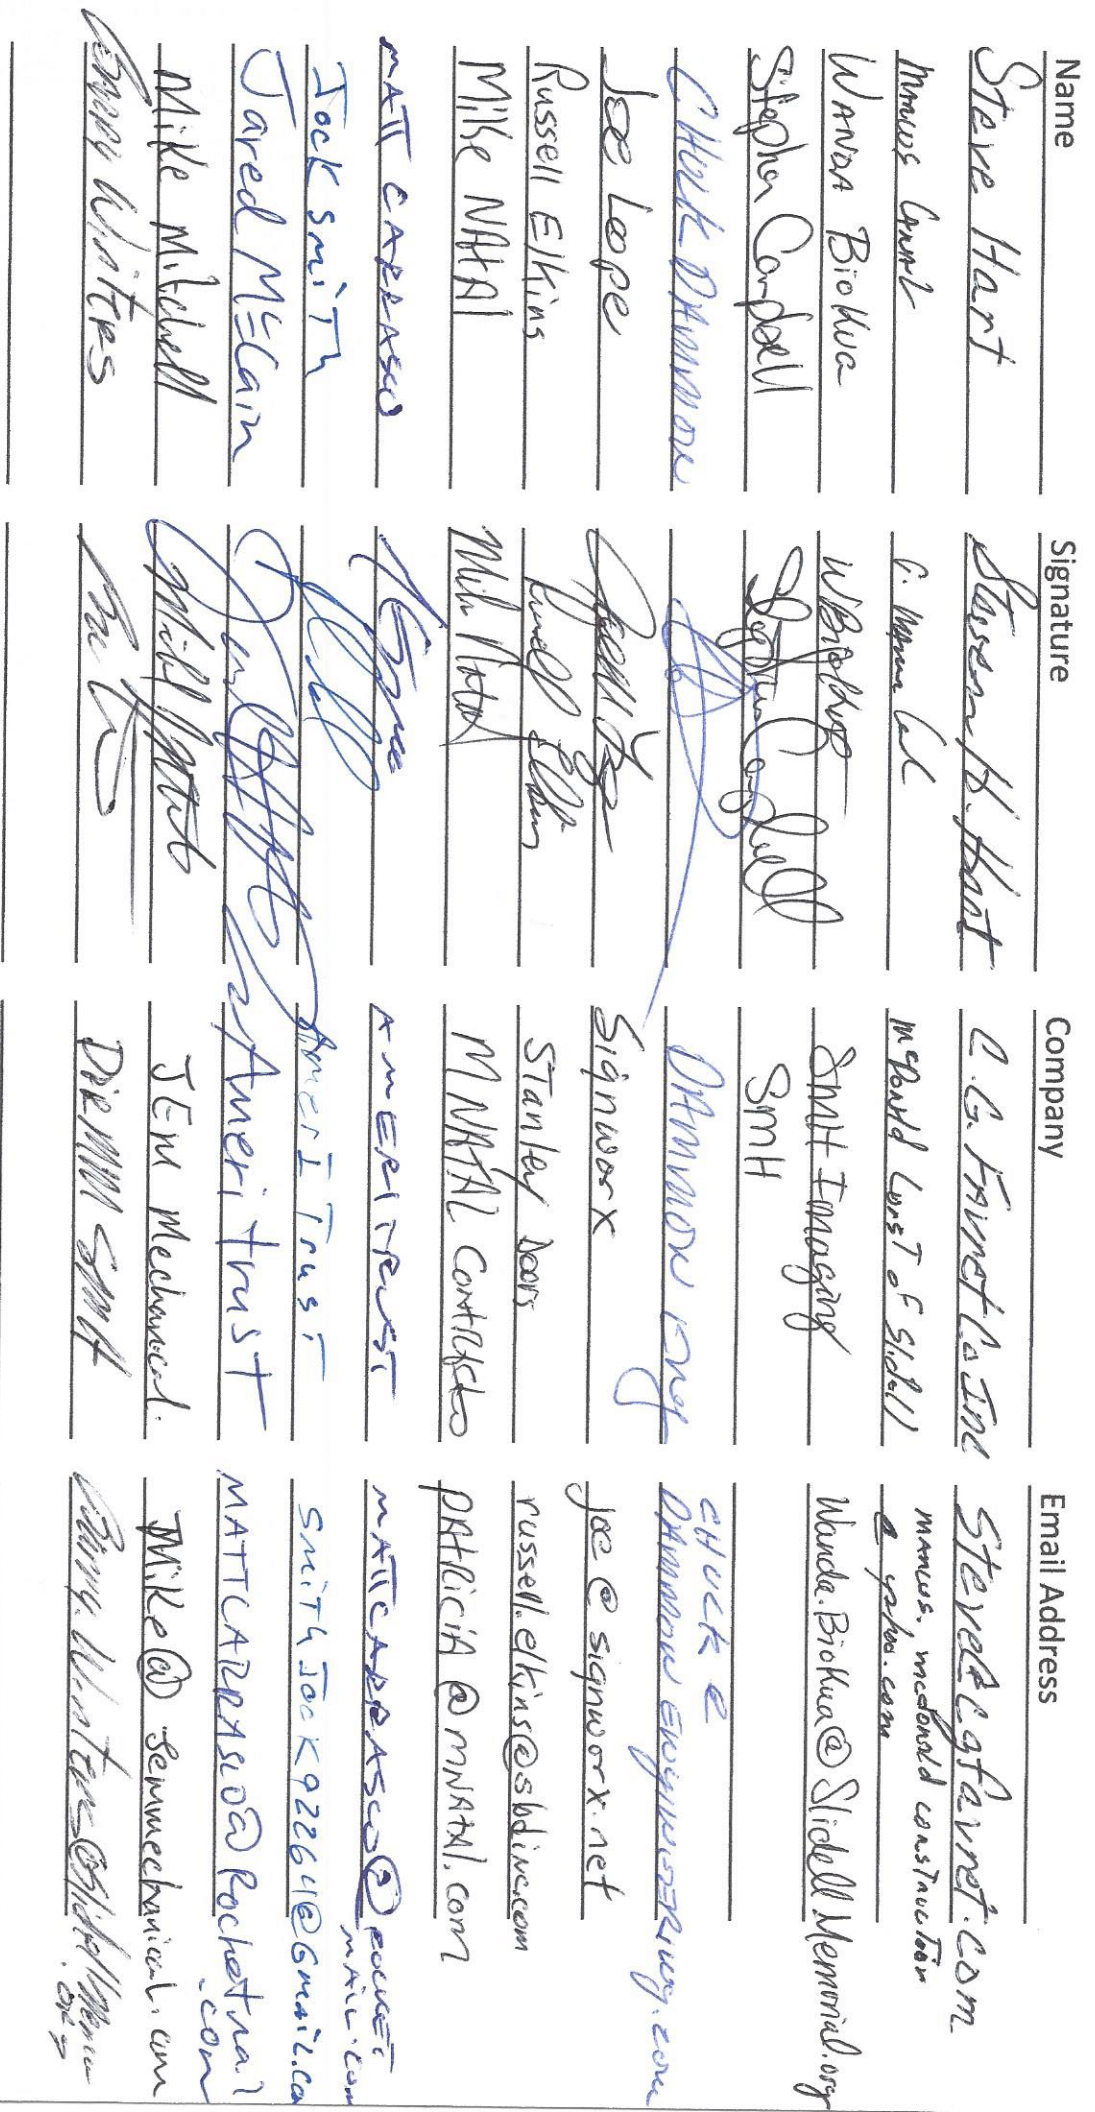 Name Signature Company Email Address
Steve Hart Steven H. Hart C.G. Favret Co Inc Steve@cgfavret.com
Marcus McDonald Const of Slidell marcus.mcdonald construction
@ yahoo.com
WANDA Biokua SMH Imaging Wanda.Biokua@SlidellMemorial.org
Stephen Campbell Stephen Campbell SMH
CHUCK DAMMON DAMMON ENGR CHUCK @
DAMMON ENGINEERING.com
Joe Lope Signworx joe@signworx.net
Russell Elkins Russell Elkins Stanley Doors russell.elkins@sbdinc.com
Mike NATAL Mike Natal M NATAL CONTRACTO PATRICIA @MNATAL.com
MATT CARRASCO AMERITRUST MATTCARRASCO@ROCKET
MAIL.COM
Jock Smith AmerITrust SmithJock92264@Gmail.co
Jared McCain Ameritrust MATTCARRASCO@Rocketmail
.com
Mike Mitchell JEM Mechanical. Mike@Jemmechanical.com
Winters DIR MM SMH Winters@Slidellmem
.org